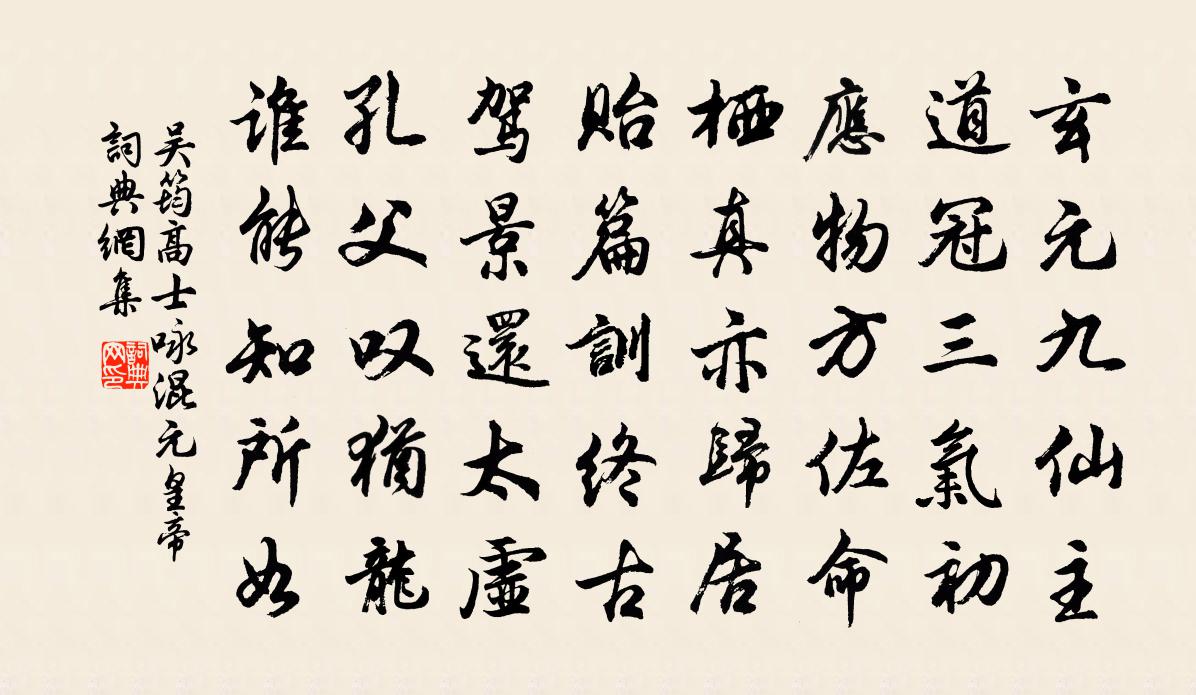 玄元九仙主
道冠三氣初
應物方佐命
栖真亦歸居
貽篇訓終古
駕景還太虛
孔父叹猶龍
誰能知所如
吳筠高士咏混元皇帝
詞典網集
詞典
网印